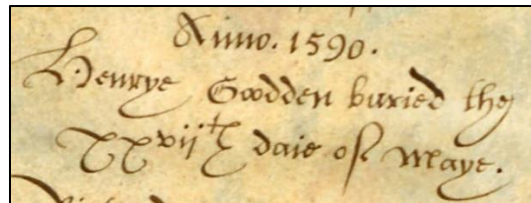 Anno. 1590.
Henrye Goodden buried the
xxvijth daie of Maye.